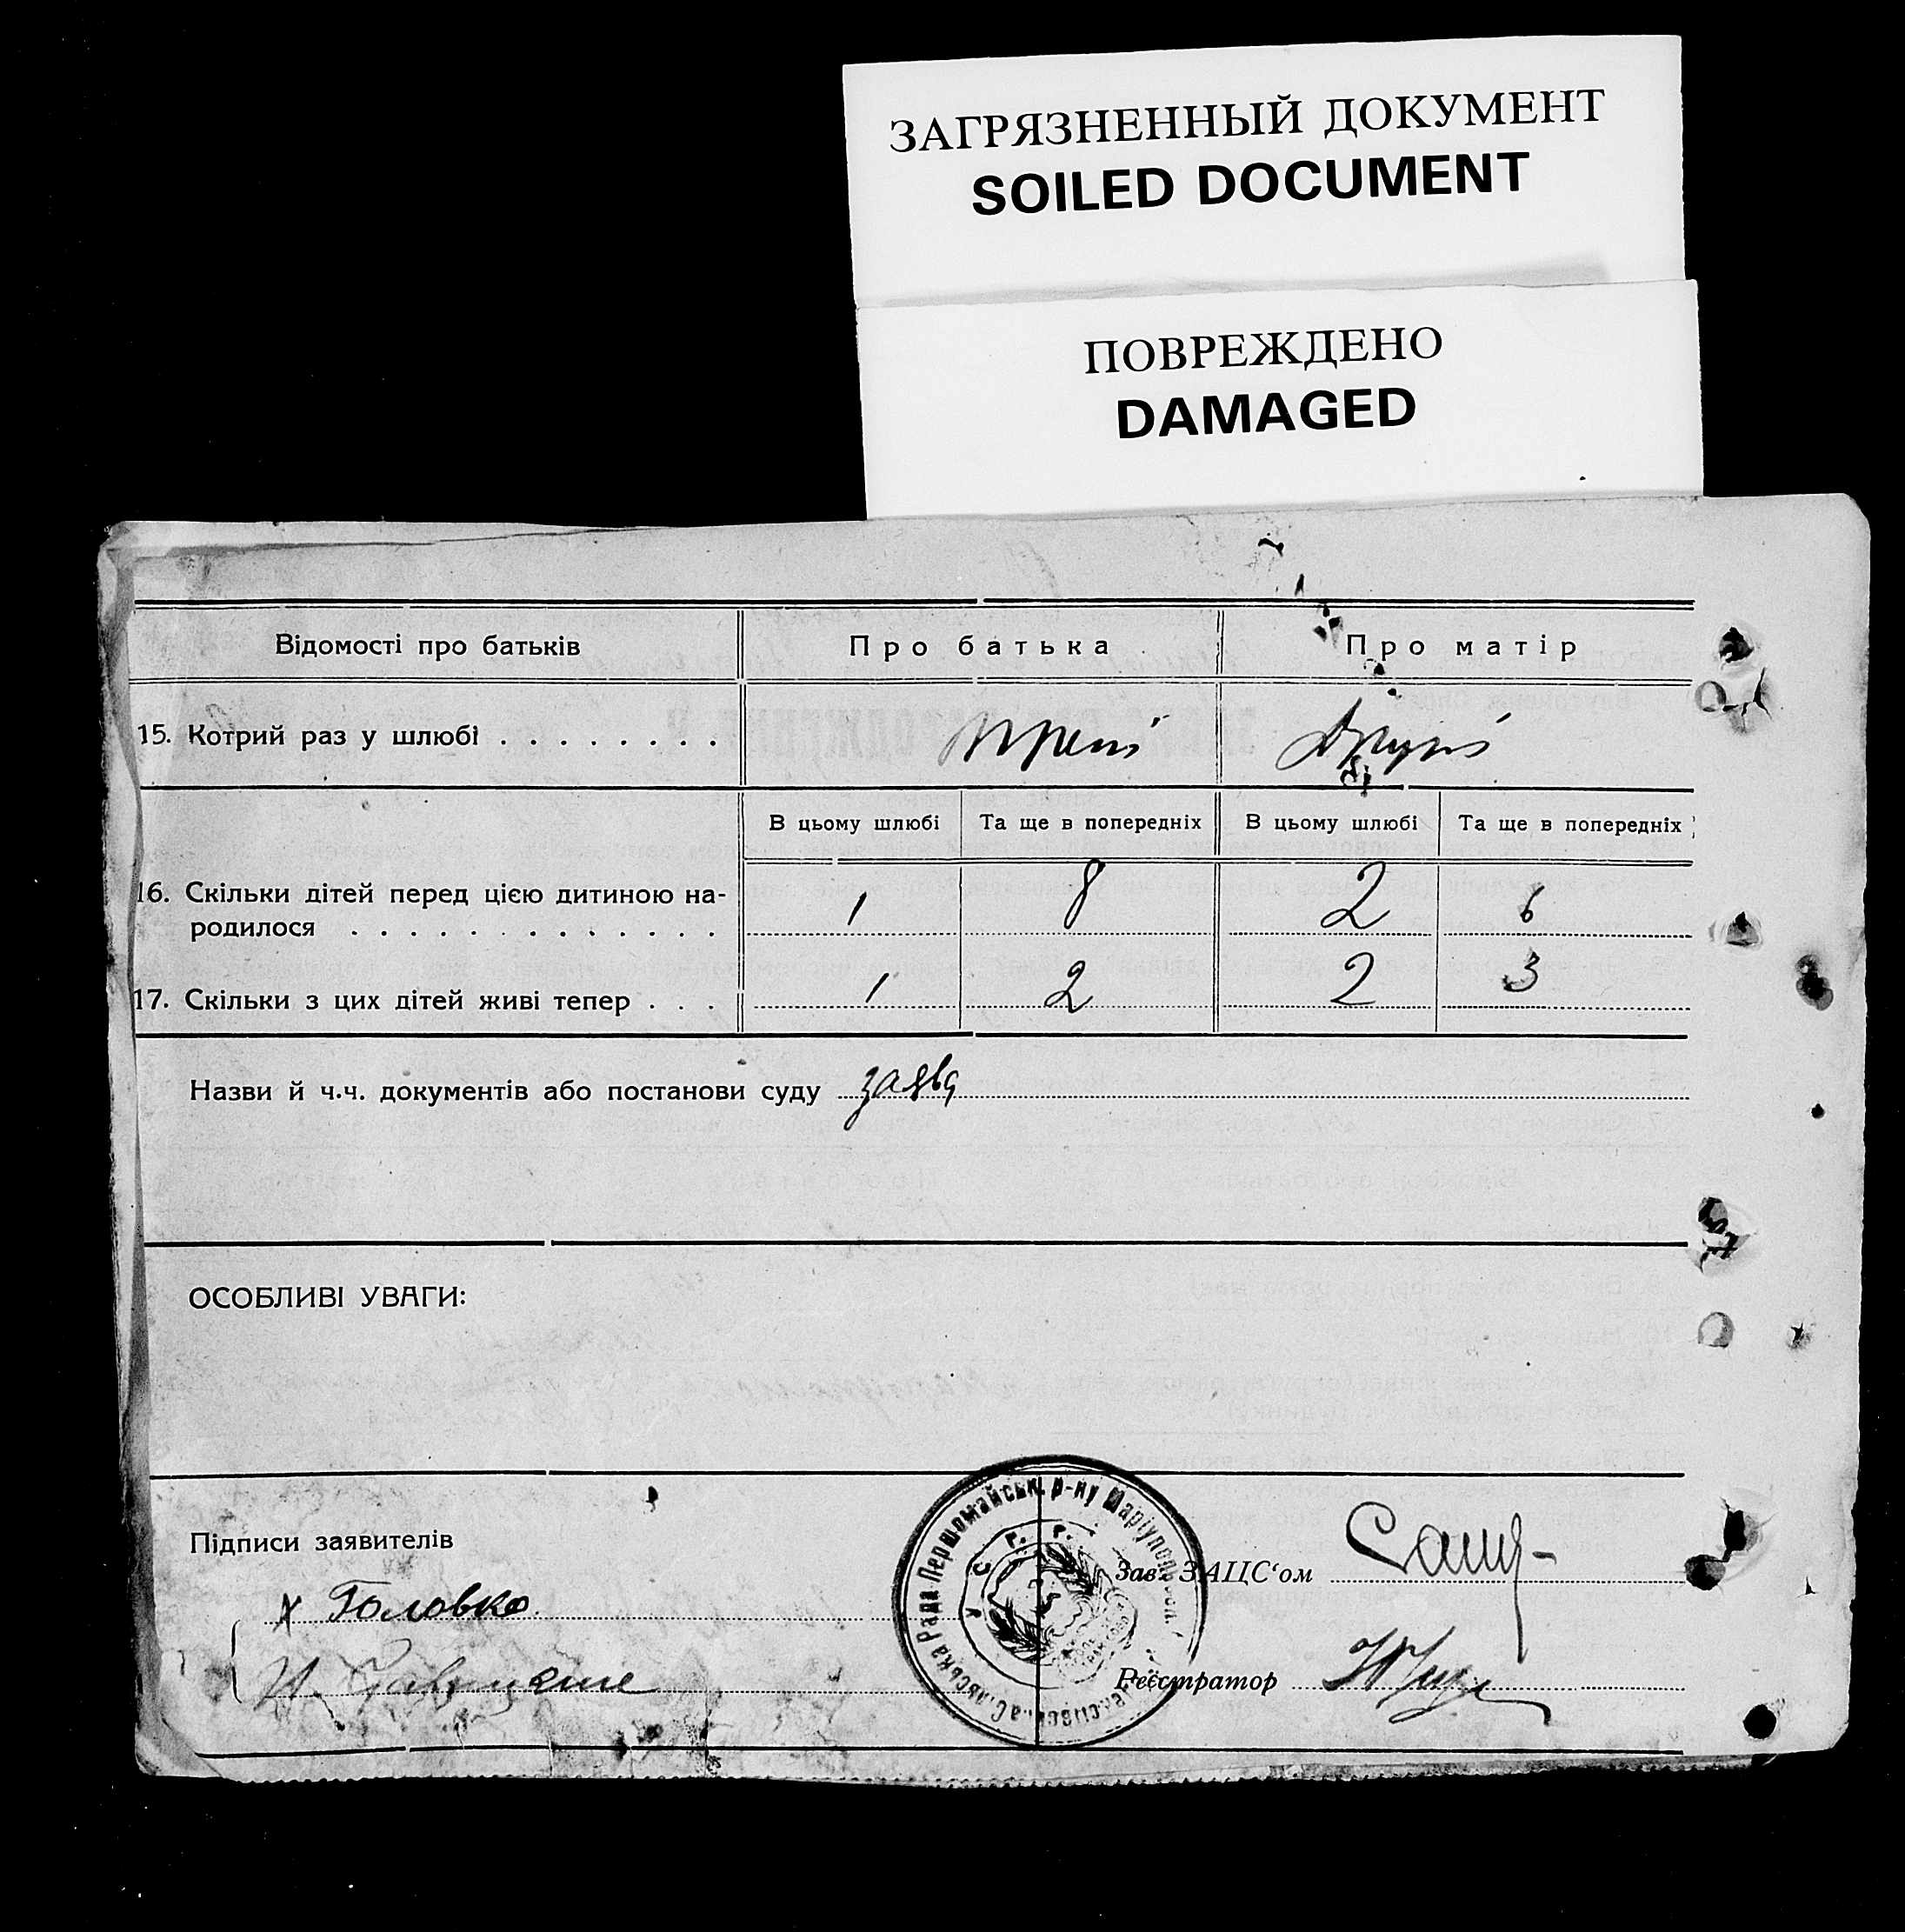 ЗАГРЯЗНЕННЫЙ ДОКУМЕНТ
SOILED DOCUMENT
ПОВРЕЖДЕНО
DAMAGED
Відомості про батьків Про батька Про матір
15. Котрий раз у шлюбі . . . . . . . . третій Другий
В цьому шлюбі Та ще в попередніх В цьому шлюбі Та ще в попередніх
16. Скільки дітей перед цією дитиною на-
родилося . . . . . . . . . . . . . 1 8 2 6
17. Скільки з цих дітей живі тепер . . . 1 2 2 3
Назви й ч.ч. документів або постанови суду заява
ОСОБЛИВІ УВАГИ:
Підписи заявителів
х Головко
Зав. ЗАЦС‘ом
Реєстратор
Сільська Рада Першомайськ. р-ну Маріупольськ.
У С Р Р